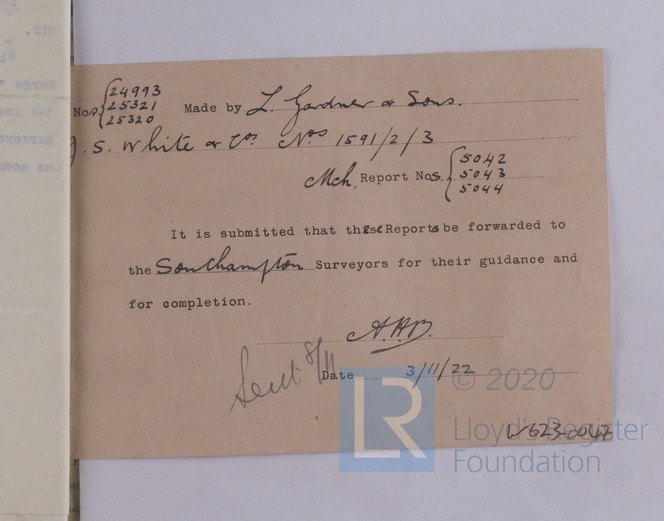 Nos. 24993
25321
25320
Made by L. Gardner & Sons.
J. S. White & Cos Nos 1591/2/3
Mch. Report Nos. 5042
5043
5044
It is submitted that these Reports be forwarded to
the Southampton Surveyors for their guidance and
for completion.
A.H.B.
Sent 8/11
Date 3/11/22
© 2020
LR
Lloyd's Register
Foundation
W623-0047